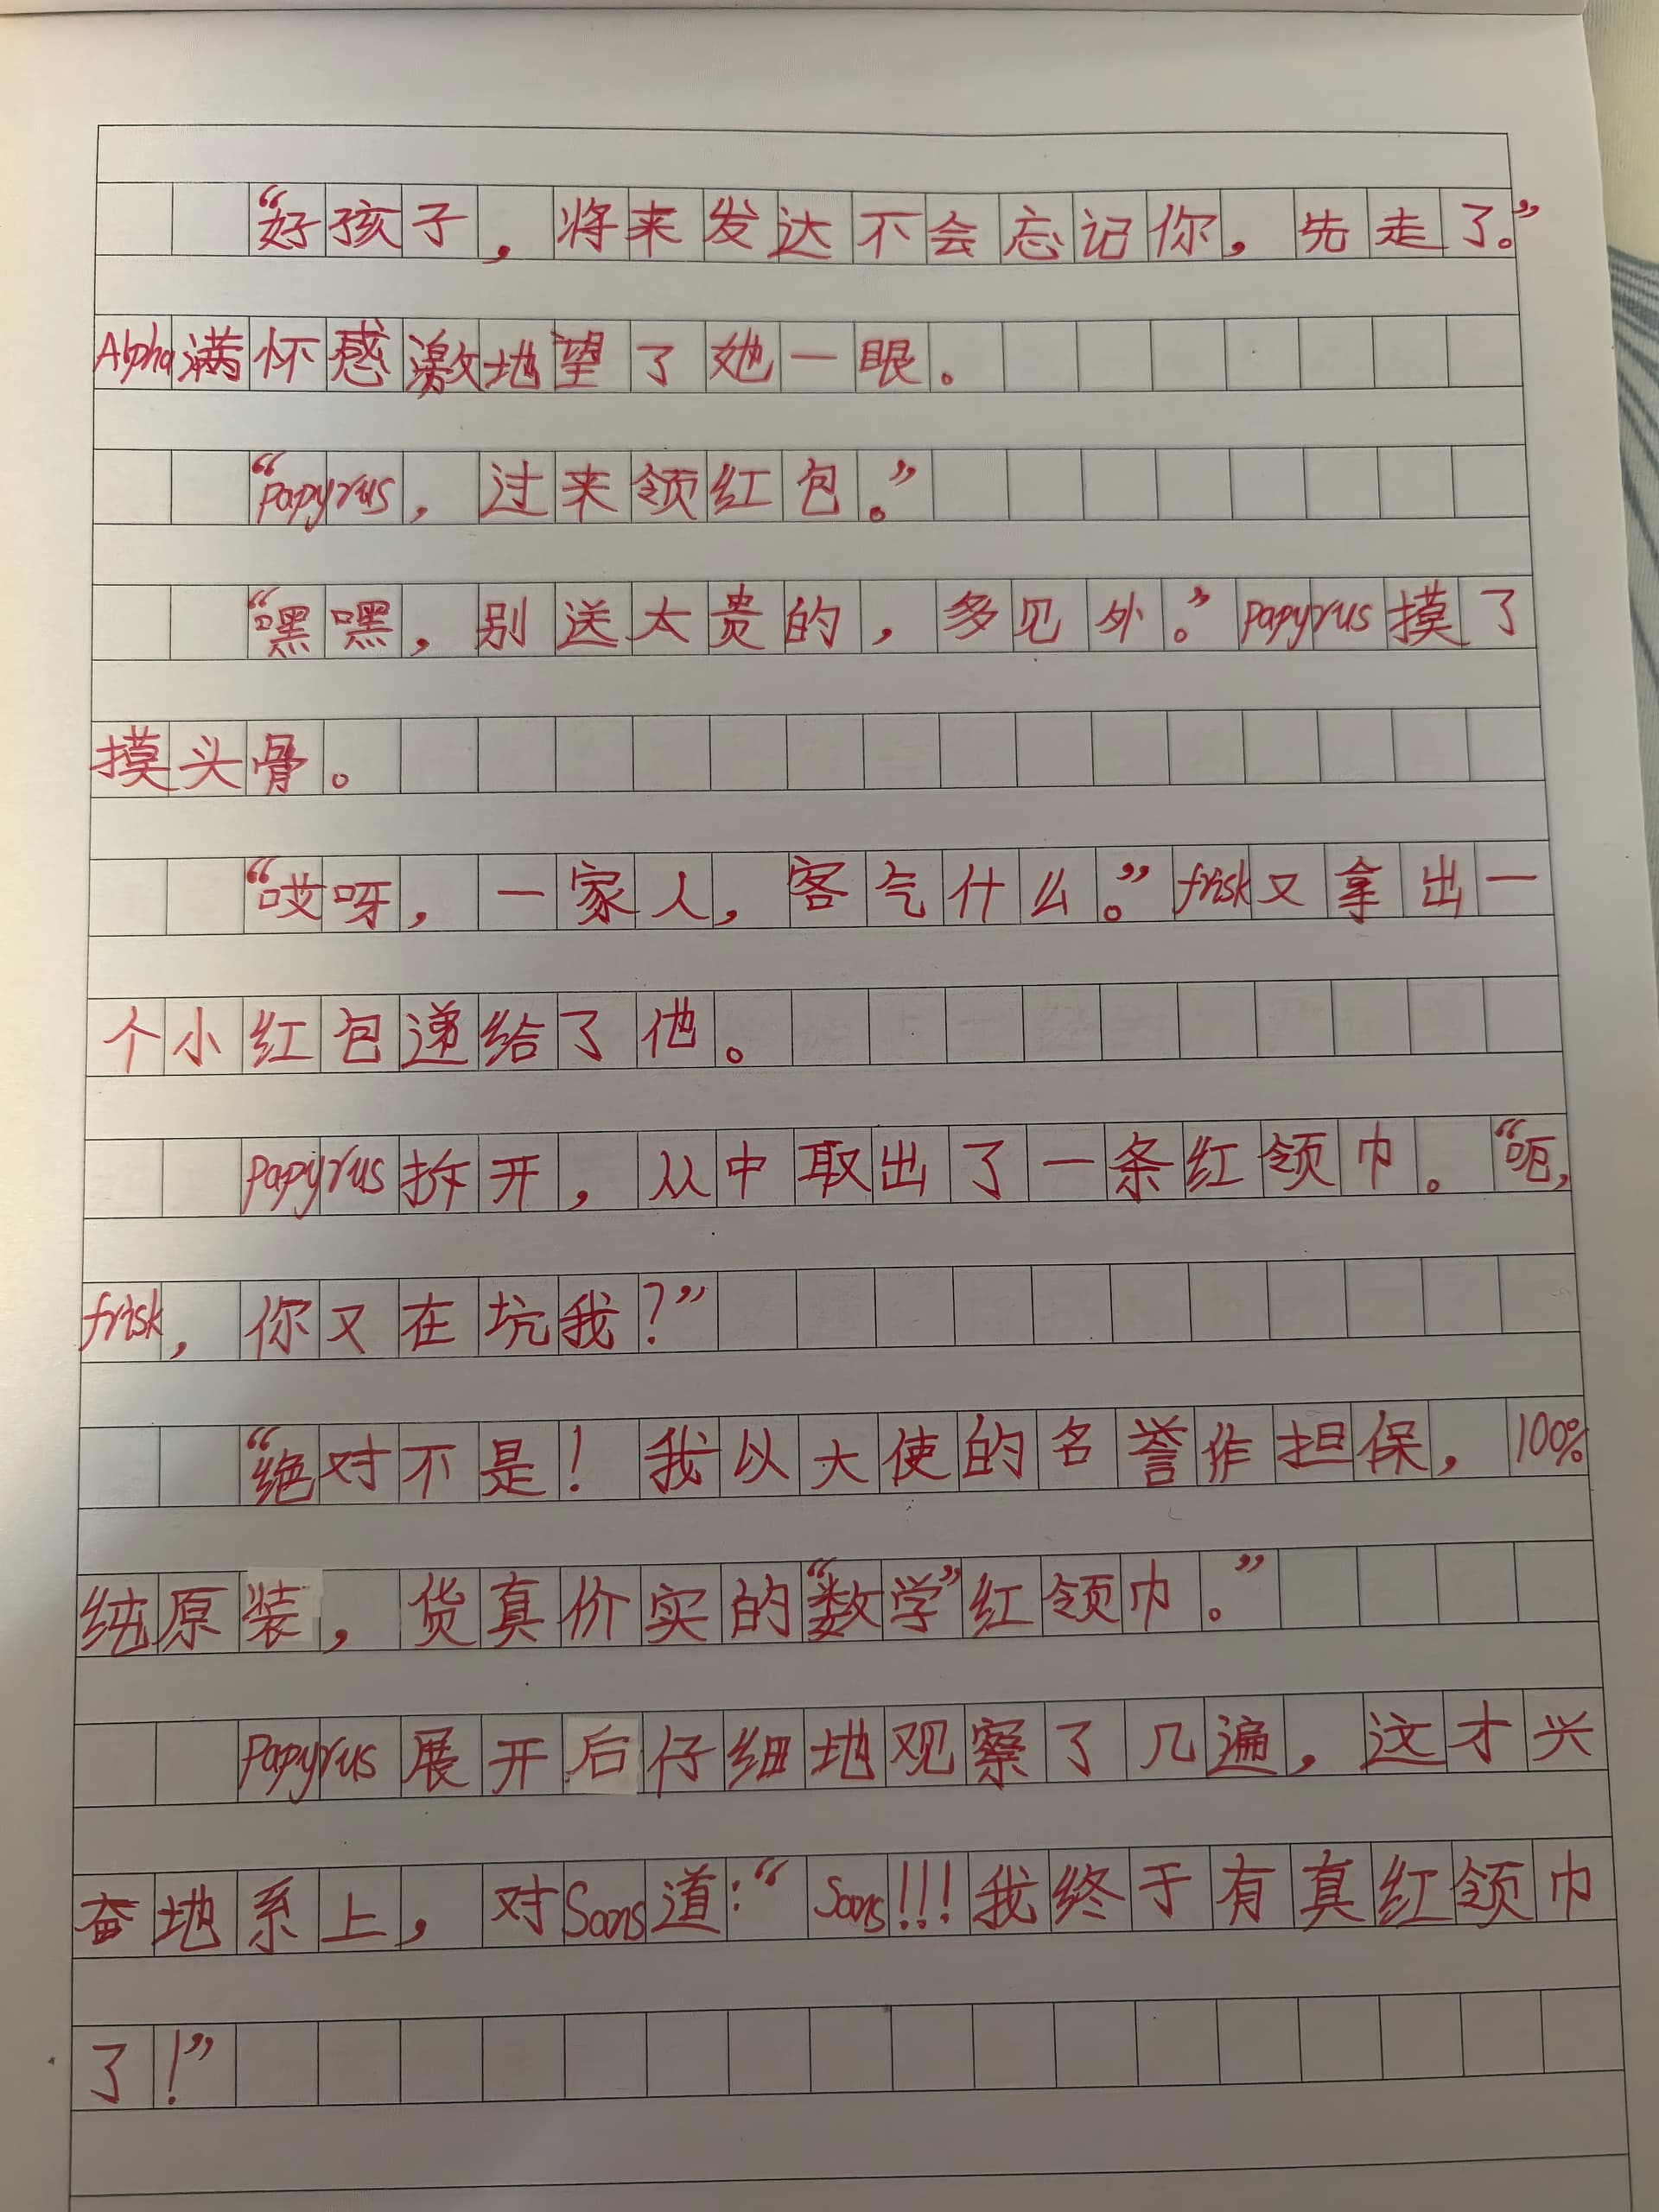 “好孩子，将来发达不会忘记你，先走了。”
Alpha满怀感激地望了她一眼。
“papyrus，过来领红包。”
“嘿嘿，别送太贵的，多见外。”papyrus摸了
摸头骨。
“哎呀，一家人，客气什么。”frisk又拿出一
个小红包递给了他。
papyrus拆开，从中取出了一条红领巾。“呃，
frisk，你又在坑我？”
“绝对不是！我以大使的名誉作担保，100%
纯原装，货真价实的“数学”红领巾。”
Papyrus展开后仔细地观察了几遍，这才兴
奋地系上，对Sans道：“Sans!!!我终于有真红领巾
了！”